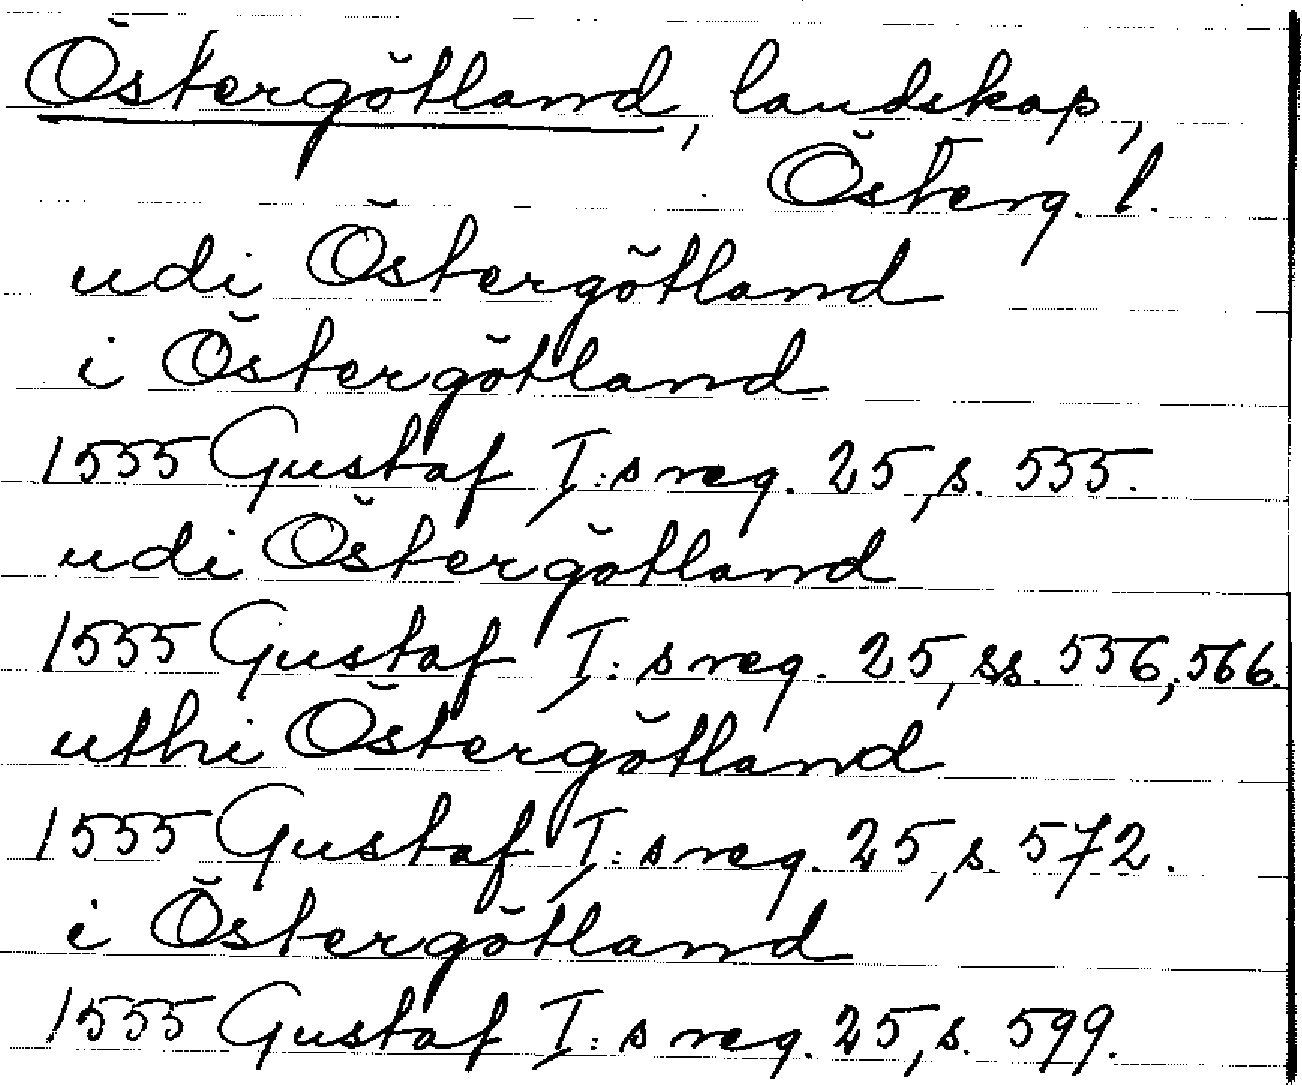 Östergötland, landskap,
Österg. l.
udi Östergötland
i Östergötland
1555 Gustaf I:s reg. 25, s. 555.
udi Östergötland
1555 Gustaf I:s reg. 25, ss. 556, 566.
uthi Östergötland
1555 Gustaf I:s reg. 25, s. 572.
i Östergötland
1555 Gustaf I:s reg. 25, s. 599.